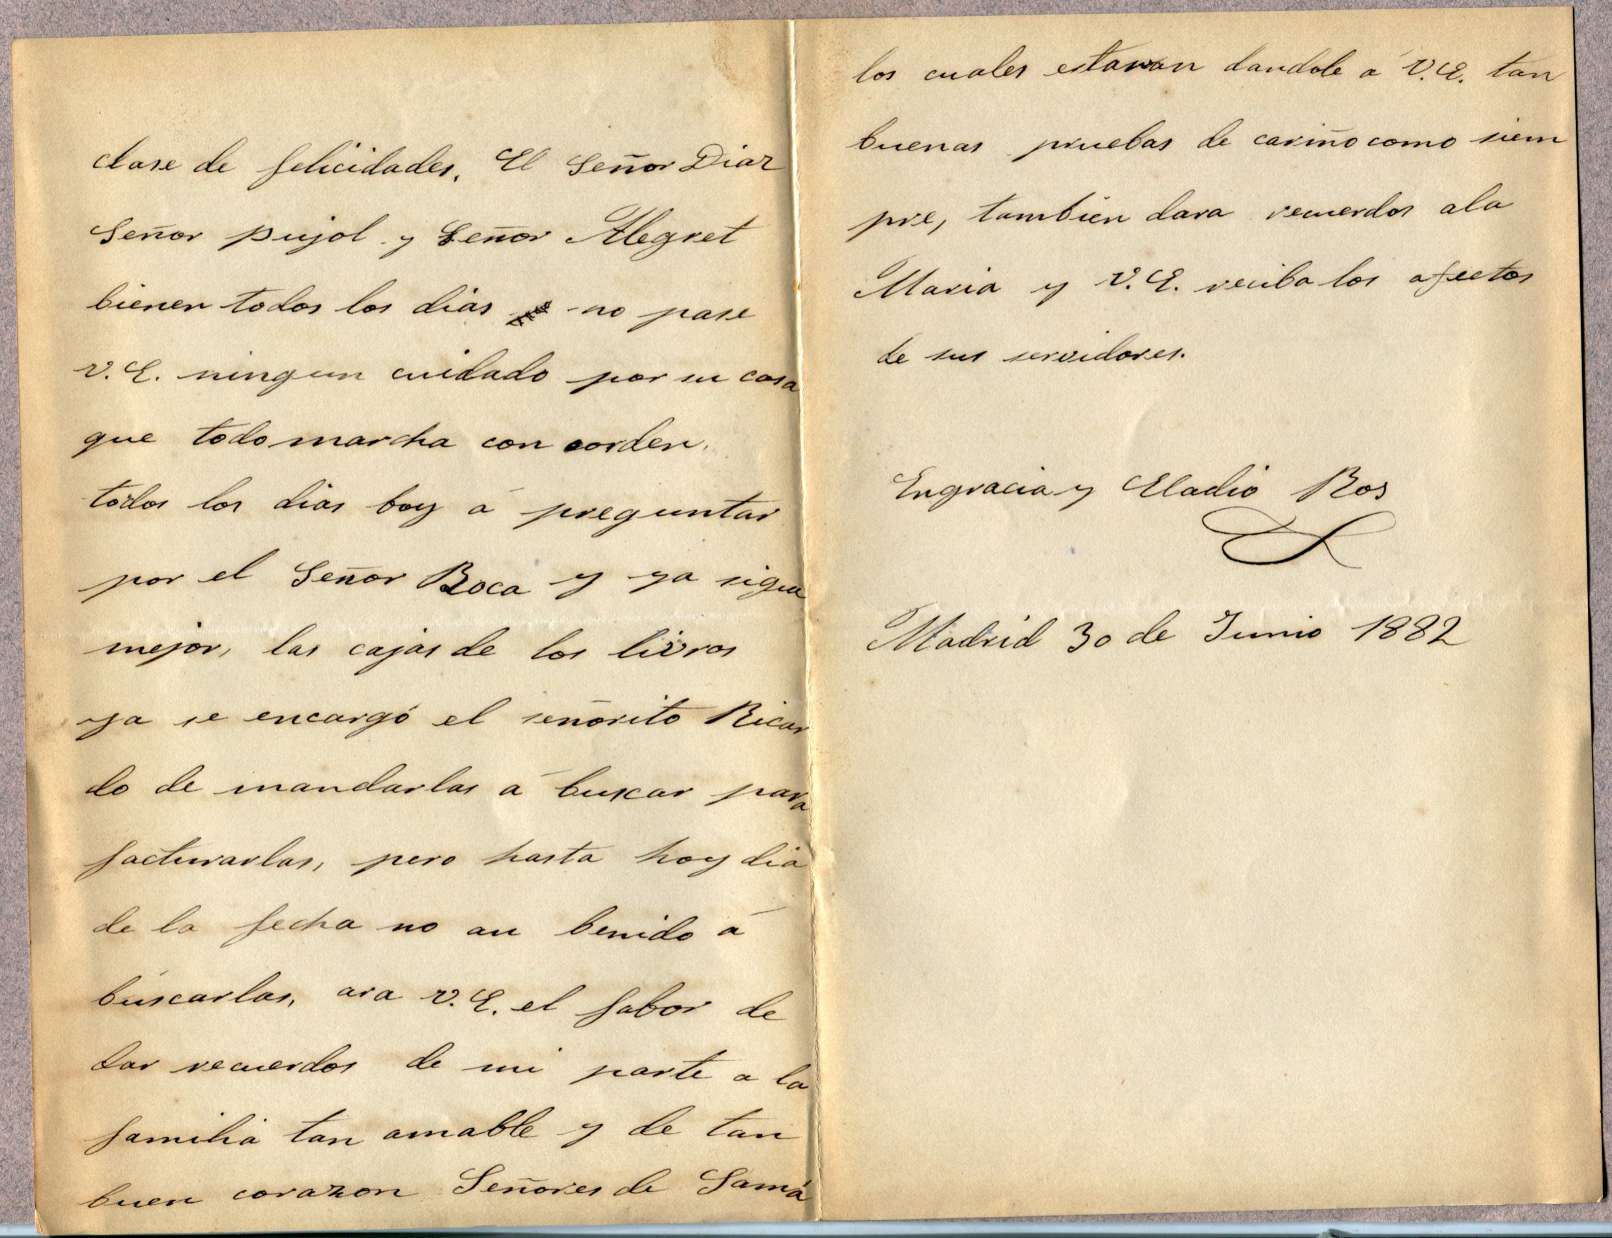 clase de felicidades. El Señor Diaz
Señor Pujol y Señor Alegret
bienen todos los dias no pase
V.E. ningun cuidado por su casa
que todo marcha con orden.
todos los dias boy á preguntar
por el Señor Roca y ya sigue
mejor, las cajas de los livros
ya se encargó el señorito Ricar
do de mandarlas á buscar para
facturarlas, pero hasta hoy dia
de la fecha no an benido á
búscarlas, ara V.E. el fabor de
dar recuerdos de mi parte a la
familia tan amable y de tan
buen corazon Señores de Samá
los cuales estaran dandole á V.E. tan
buenas pruebas de cariño como siem
pre, tambien dara recuerdos a la
Maria y V.E. reciba los afectos
de sus servidores.
Engracia y Eladio Ros
Madrid 30 de Junio 1882